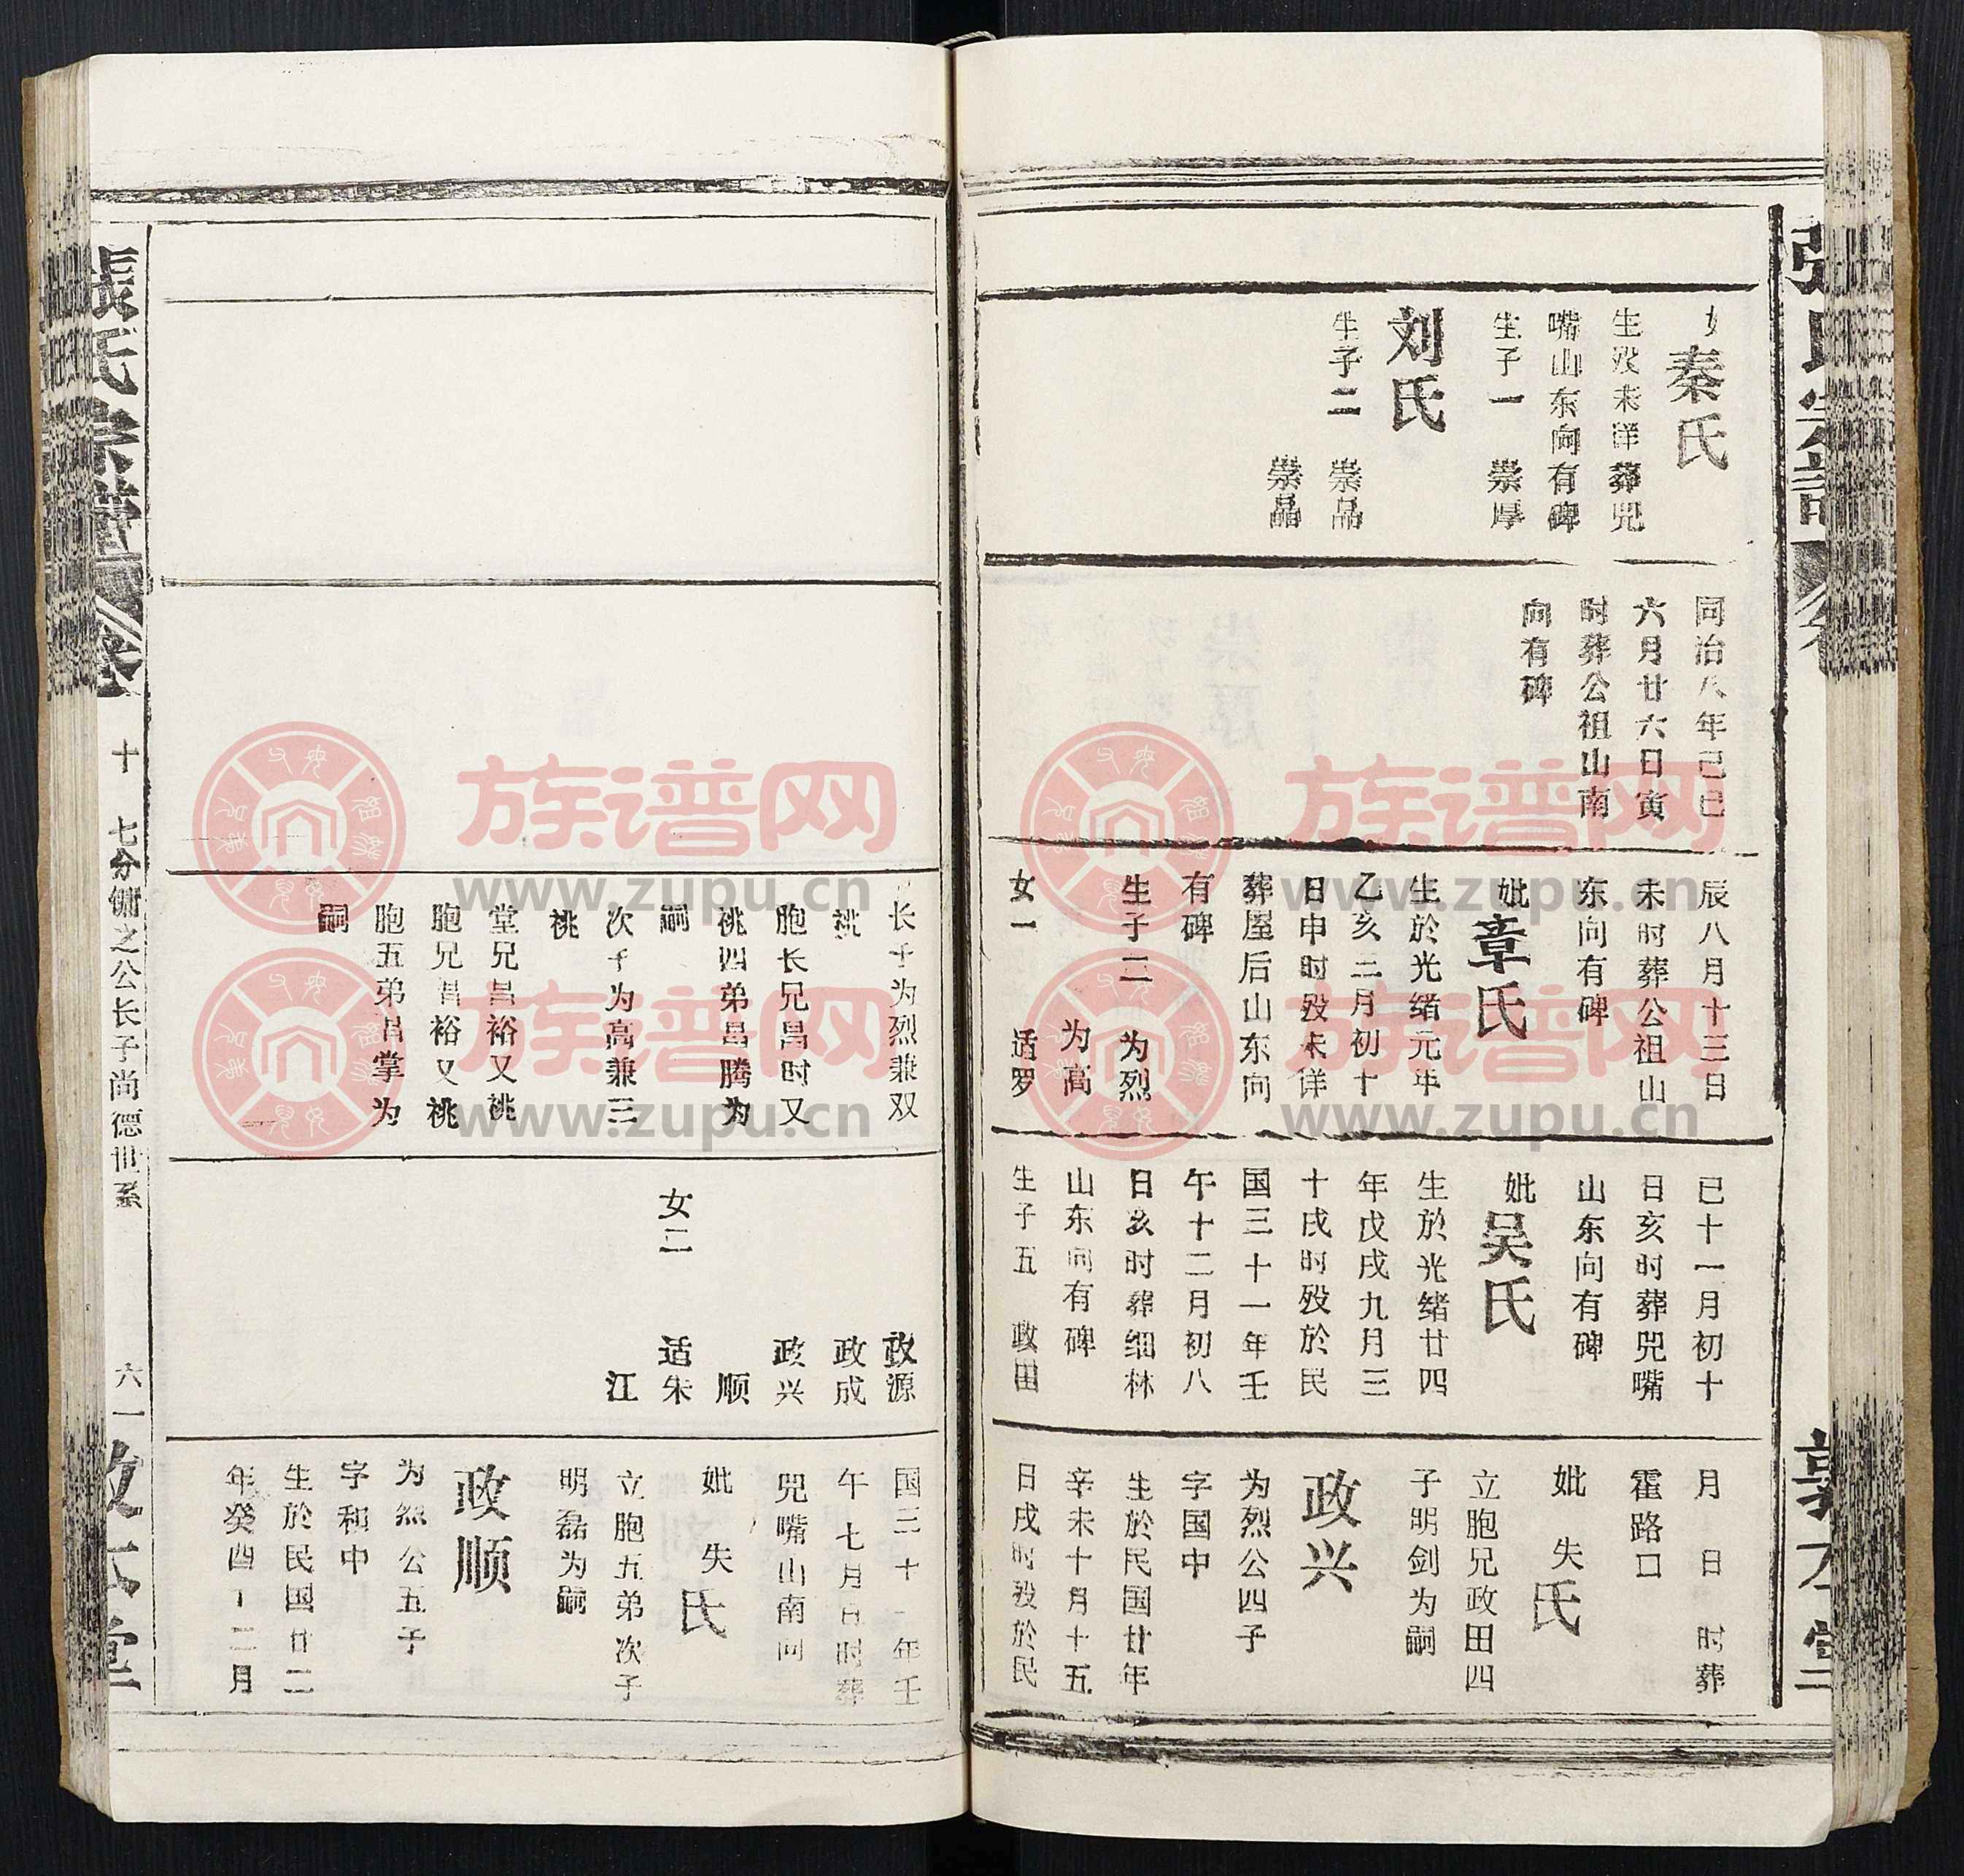 秦氏
生殁未详葬兕
嘴山东向有碑
生子一 崇厚
刘氏
生子二 崇品
崇晶
同治八年己巳
六月廿六日寅
时葬公祖山南
向有碑
辰八月十三日
未时葬公祖山
东向有碑
妣章氏
生於光绪元年
乙亥二月初十
日申时殁未详
葬屋后山东向
有碑
生子二 为烈
为高
女一 适罗
巳十一月初十
日亥时葬兕嘴
山东向有碑
妣吴氏
生於光绪廿四
年戊戌九月三
十戌时殁於民
国三十一年壬
午十二月初八
日亥时葬细林
山东向有碑
生子五 政田
月 日 时葬
霍路口
妣失氏
立胞兄政田四
子明剑为嗣
政兴
为烈公四子
字国中
生於民国廿年
辛未十月十五
日戌时殁於民
长子为烈兼双
祧
胞长兄昌时又
祧四弟昌腾为
嗣
次子为高兼三
祧
堂兄昌裕又祧
胞兄昌裕又祧
胞五弟昌掌为
嗣
政源
政成
政兴
顺
女二 适朱
江
国三十 年壬
午七月日时葬
兕嘴山南向
妣失氏
立胞五弟次子
明磊为嗣
政顺
为烈公五子
字和中
生於民国廿二
年癸酉十二月
張氏宗譜
十
七分镛之公长子尚德世系
六一
敦本堂
族谱网
www.zupu.cn
族谱网
www.zupu.cn
族谱网
www.zupu.cn
族谱网
www.zupu.cn